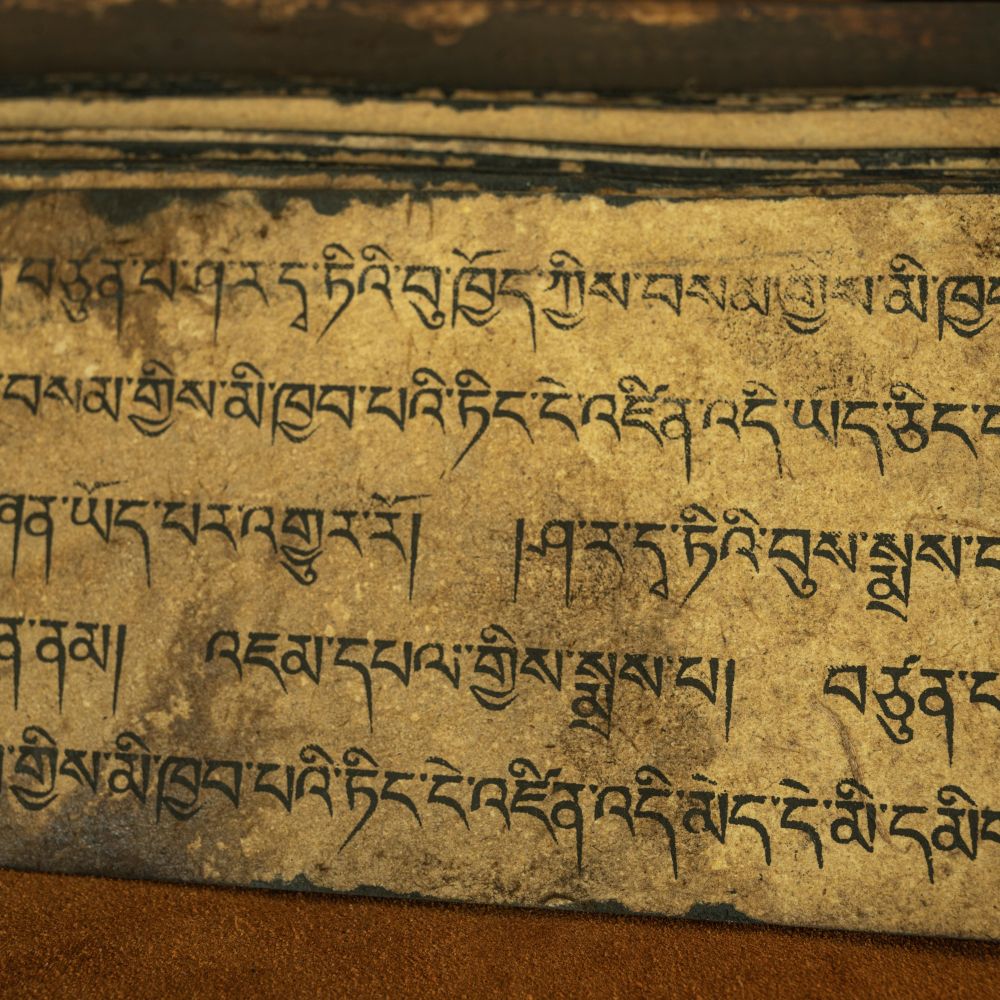 བཙུན་པ་ཤ་ར་དྭ་ཏིའི་བུ་ཁྱོད་ཀྱིས་བསམ་གྱིས་མི་ཁྱབ
བསམ་གྱིས་མི་ཁྱབ་པའི་ཏིང་ངེ་འཛིན་འདི་ཡོད་ཅིང་
ཤན་ཡོད་པར་འགྱུར་རོ། །ཤ་ར་དྭ་ཏིའི་བུས་སྨྲས་པ
ན་ནམ། འཇམ་དཔལ་གྱིས་སྨྲས་པ། བཙུན་པ
གྱིས་མི་ཁྱབ་པའི་ཏིང་ངེ་འཛིན་འདི་མེད་དེ་མི་དམིག